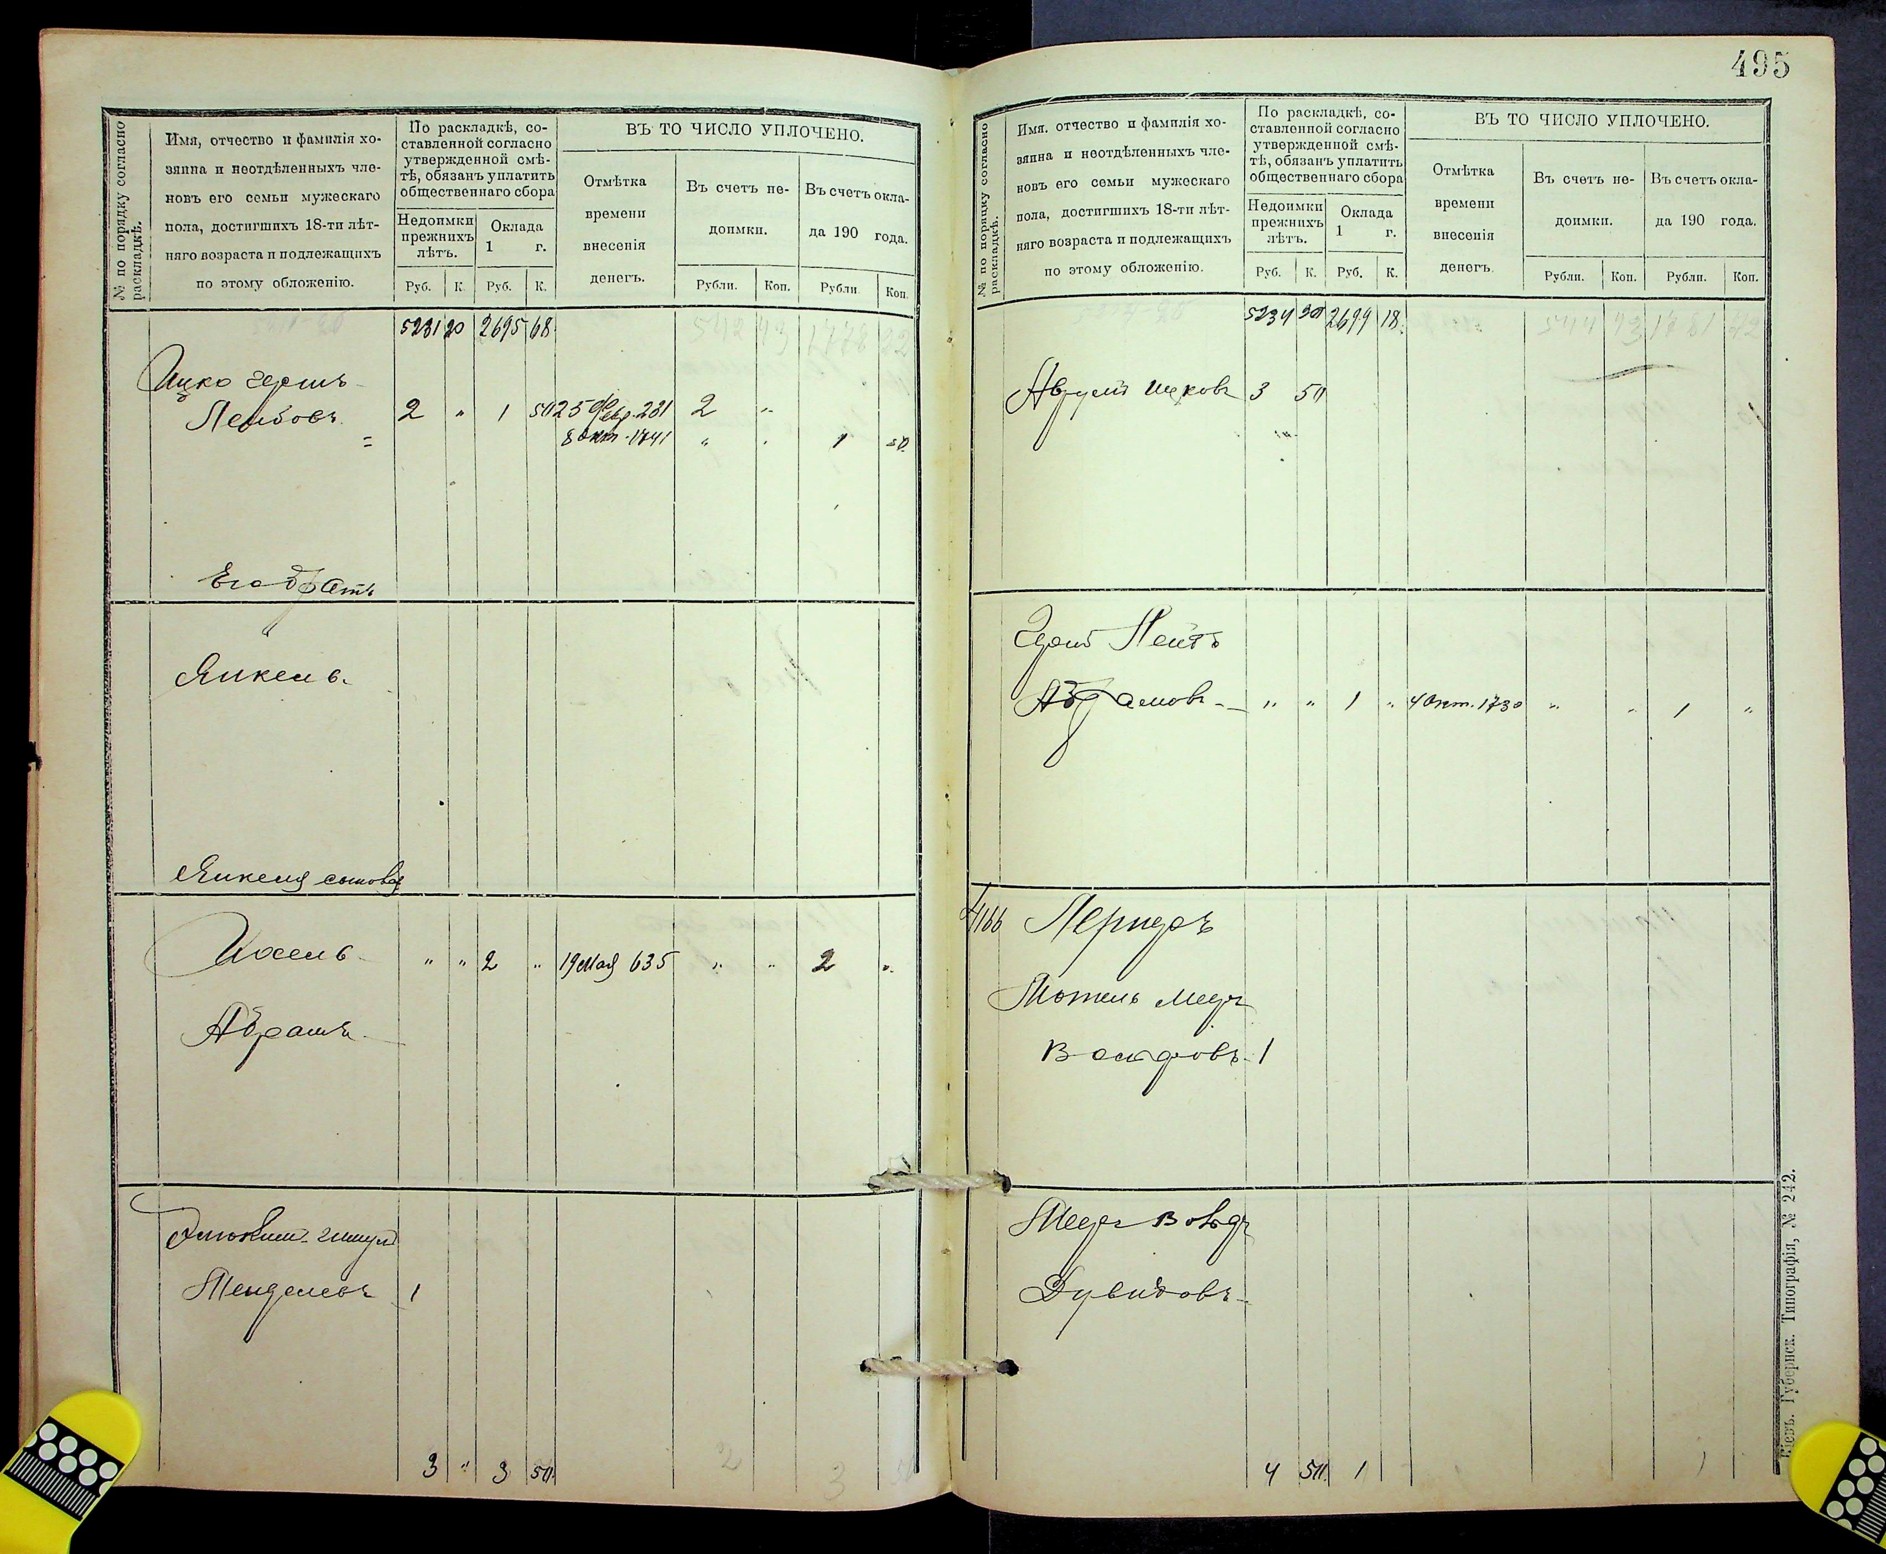 № по порядку согласно
раскладкѣ.
Имя, отчество и фамилія хо-
зяина и неотдѣленныхъ чле-
новъ его семьи мужескаго
пола, достигшихъ 18-ти лѣт-
няго возраста и подлежащихъ
по этому обложенію.
По раскладкѣ, со-
ставленной согласно
утвержденной смѣ-
тѣ, обязанъ уплатить
общественнаго сбора
Недоимки
прежнихъ
лѣтъ.
Оклада
1 г.
Руб. К. Руб. К.
ВЪ ТО ЧИСЛО УПЛОЧЕНО.
Отмѣтка
времени
внесенія
денегъ.
Въ счетъ не-
доимки.
Въ счетъ окла-
да 190 года.
Рубли. Коп. Рубли Коп.
5231 20 2695 68
Ицко Гершъ
Лейбовъ 2 " 1 50 25 Февр. 281 2 "
8 Окт. 1741 " " 1 50
Его братъ
Янкель
Янкеля сыновья
Иосель " " 2 " 19 Мая 635 " " 2 "
Абрамъ
Менделевъ 1
3 " 3 50
495
№ по порядку согласно
раскладкѣ.
Имя, отчество и фамилія хо-
зяина и неотдѣленныхъ чле-
новъ его семьи мужескаго
пола, достигшихъ 18-ти лѣт-
няго возраста и подлежащихъ
по этому обложенію.
По раскладкѣ, со-
ставленной согласно
утвержденной смѣ-
тѣ, обязанъ уплатить
общественнаго сбора
Недоимки
прежнихъ
лѣтъ.
Оклада
1 г.
Руб. К. Руб. К.
ВЪ ТО ЧИСЛО УПЛОЧЕНО.
Отмѣтка
времени
внесенія
денегъ.
Въ счетъ не-
доимки.
Въ счетъ окла-
да 190 года.
Рубли. Коп. Рубли. Коп.
5234 20 2699 18
Ицковъ 3 50
Лейбъ
Абрамовъ " " 1 " 4 Окт. 1730 " " 1 "
1166 Лернеръ
Мотель Меер
Вольфовъ 1
Меер Вольф
Дувидовъ
4 50 1
Кіевъ. Губернск. Типографія, № 242.